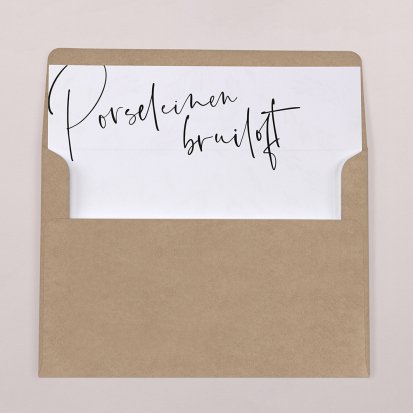 Porseleinen
bruiloft